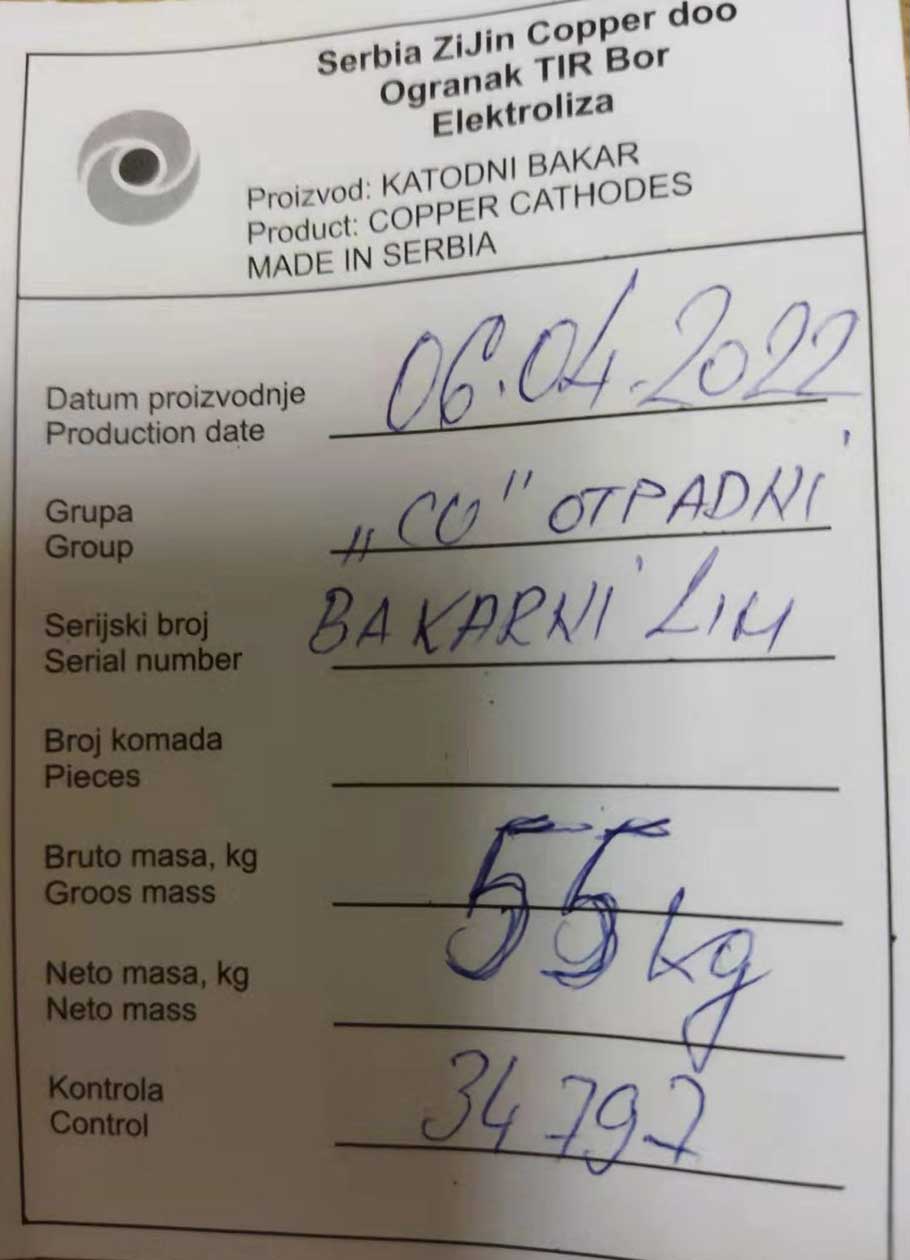 Serbia ZiJin Copper doo
Ogranak TIR Bor
Elektroliza
Proizvod: KATODNI BAKAR
Product: COPPER CATHODES
MADE IN SERBIA
Datum proizvodnje
Production date
06.04.2022
Grupa
Group
„CU” OTPADNI
Serijski broj
Serial number
BAKARNI LIM
Broj komada
Pieces
Bruto masa, kg
Groos mass
55 kg
Neto masa, kg
Neto mass
Kontrola
Control
34797